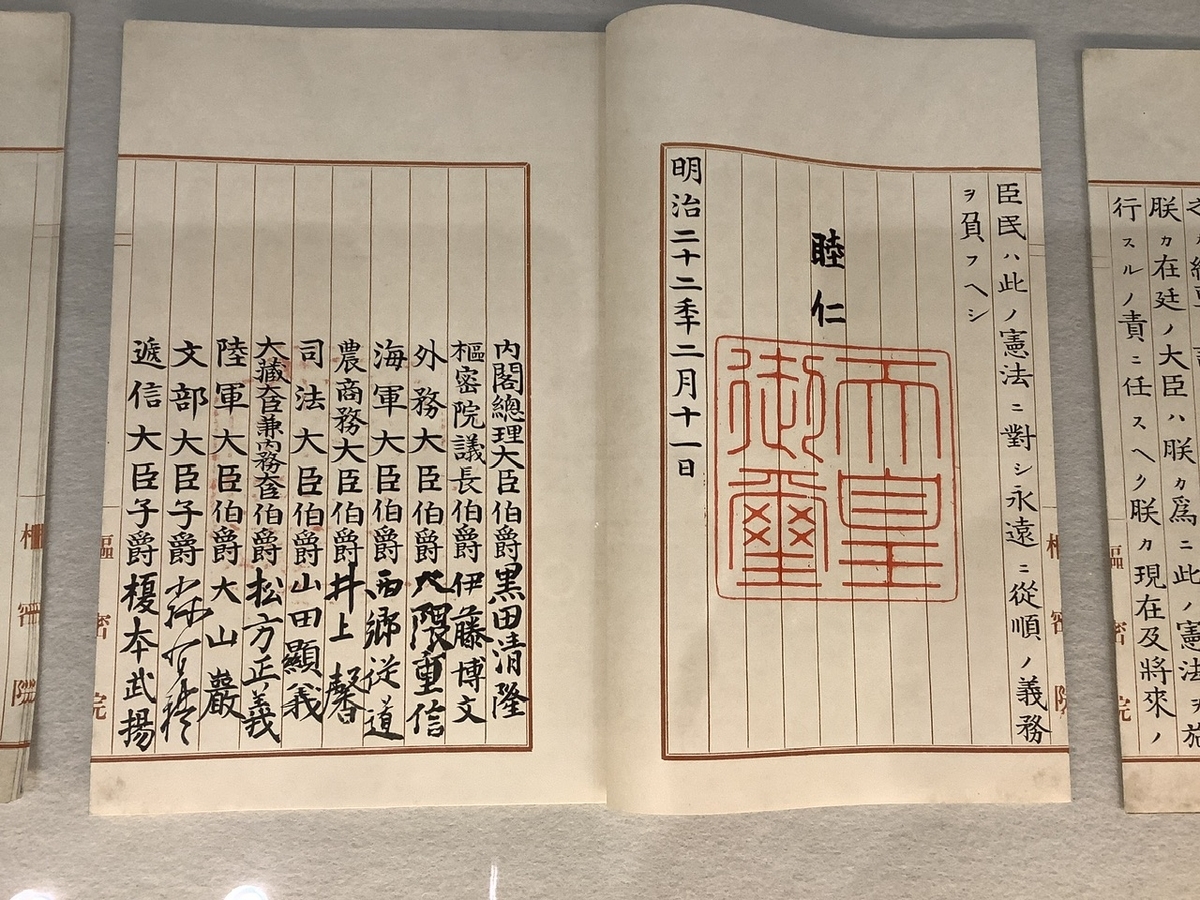 朕カ在廷ノ大臣ハ朕カ爲ニ此ノ憲法ヲ施
行スルノ責ニ任スヘク朕カ現在及將來ノ
樞密院
臣民ハ此ノ憲法ニ對シ永遠ニ從順ノ義務
ヲ負フヘシ
睦仁
天皇
御璽
明治二十二秊二月十一日
內閣總理大臣伯爵黑田清隆
樞密院議長伯爵伊藤博文
外務大臣伯爵大隈重信
海軍大臣伯爵西鄉從道
農商務大臣伯爵井上馨
司法大臣伯爵山田顯義
大藏大臣兼內務大臣伯爵松方正義
陸軍大臣伯爵大山巖
文部大臣子爵森有禮
遞信大臣子爵榎本武揚
樞密院